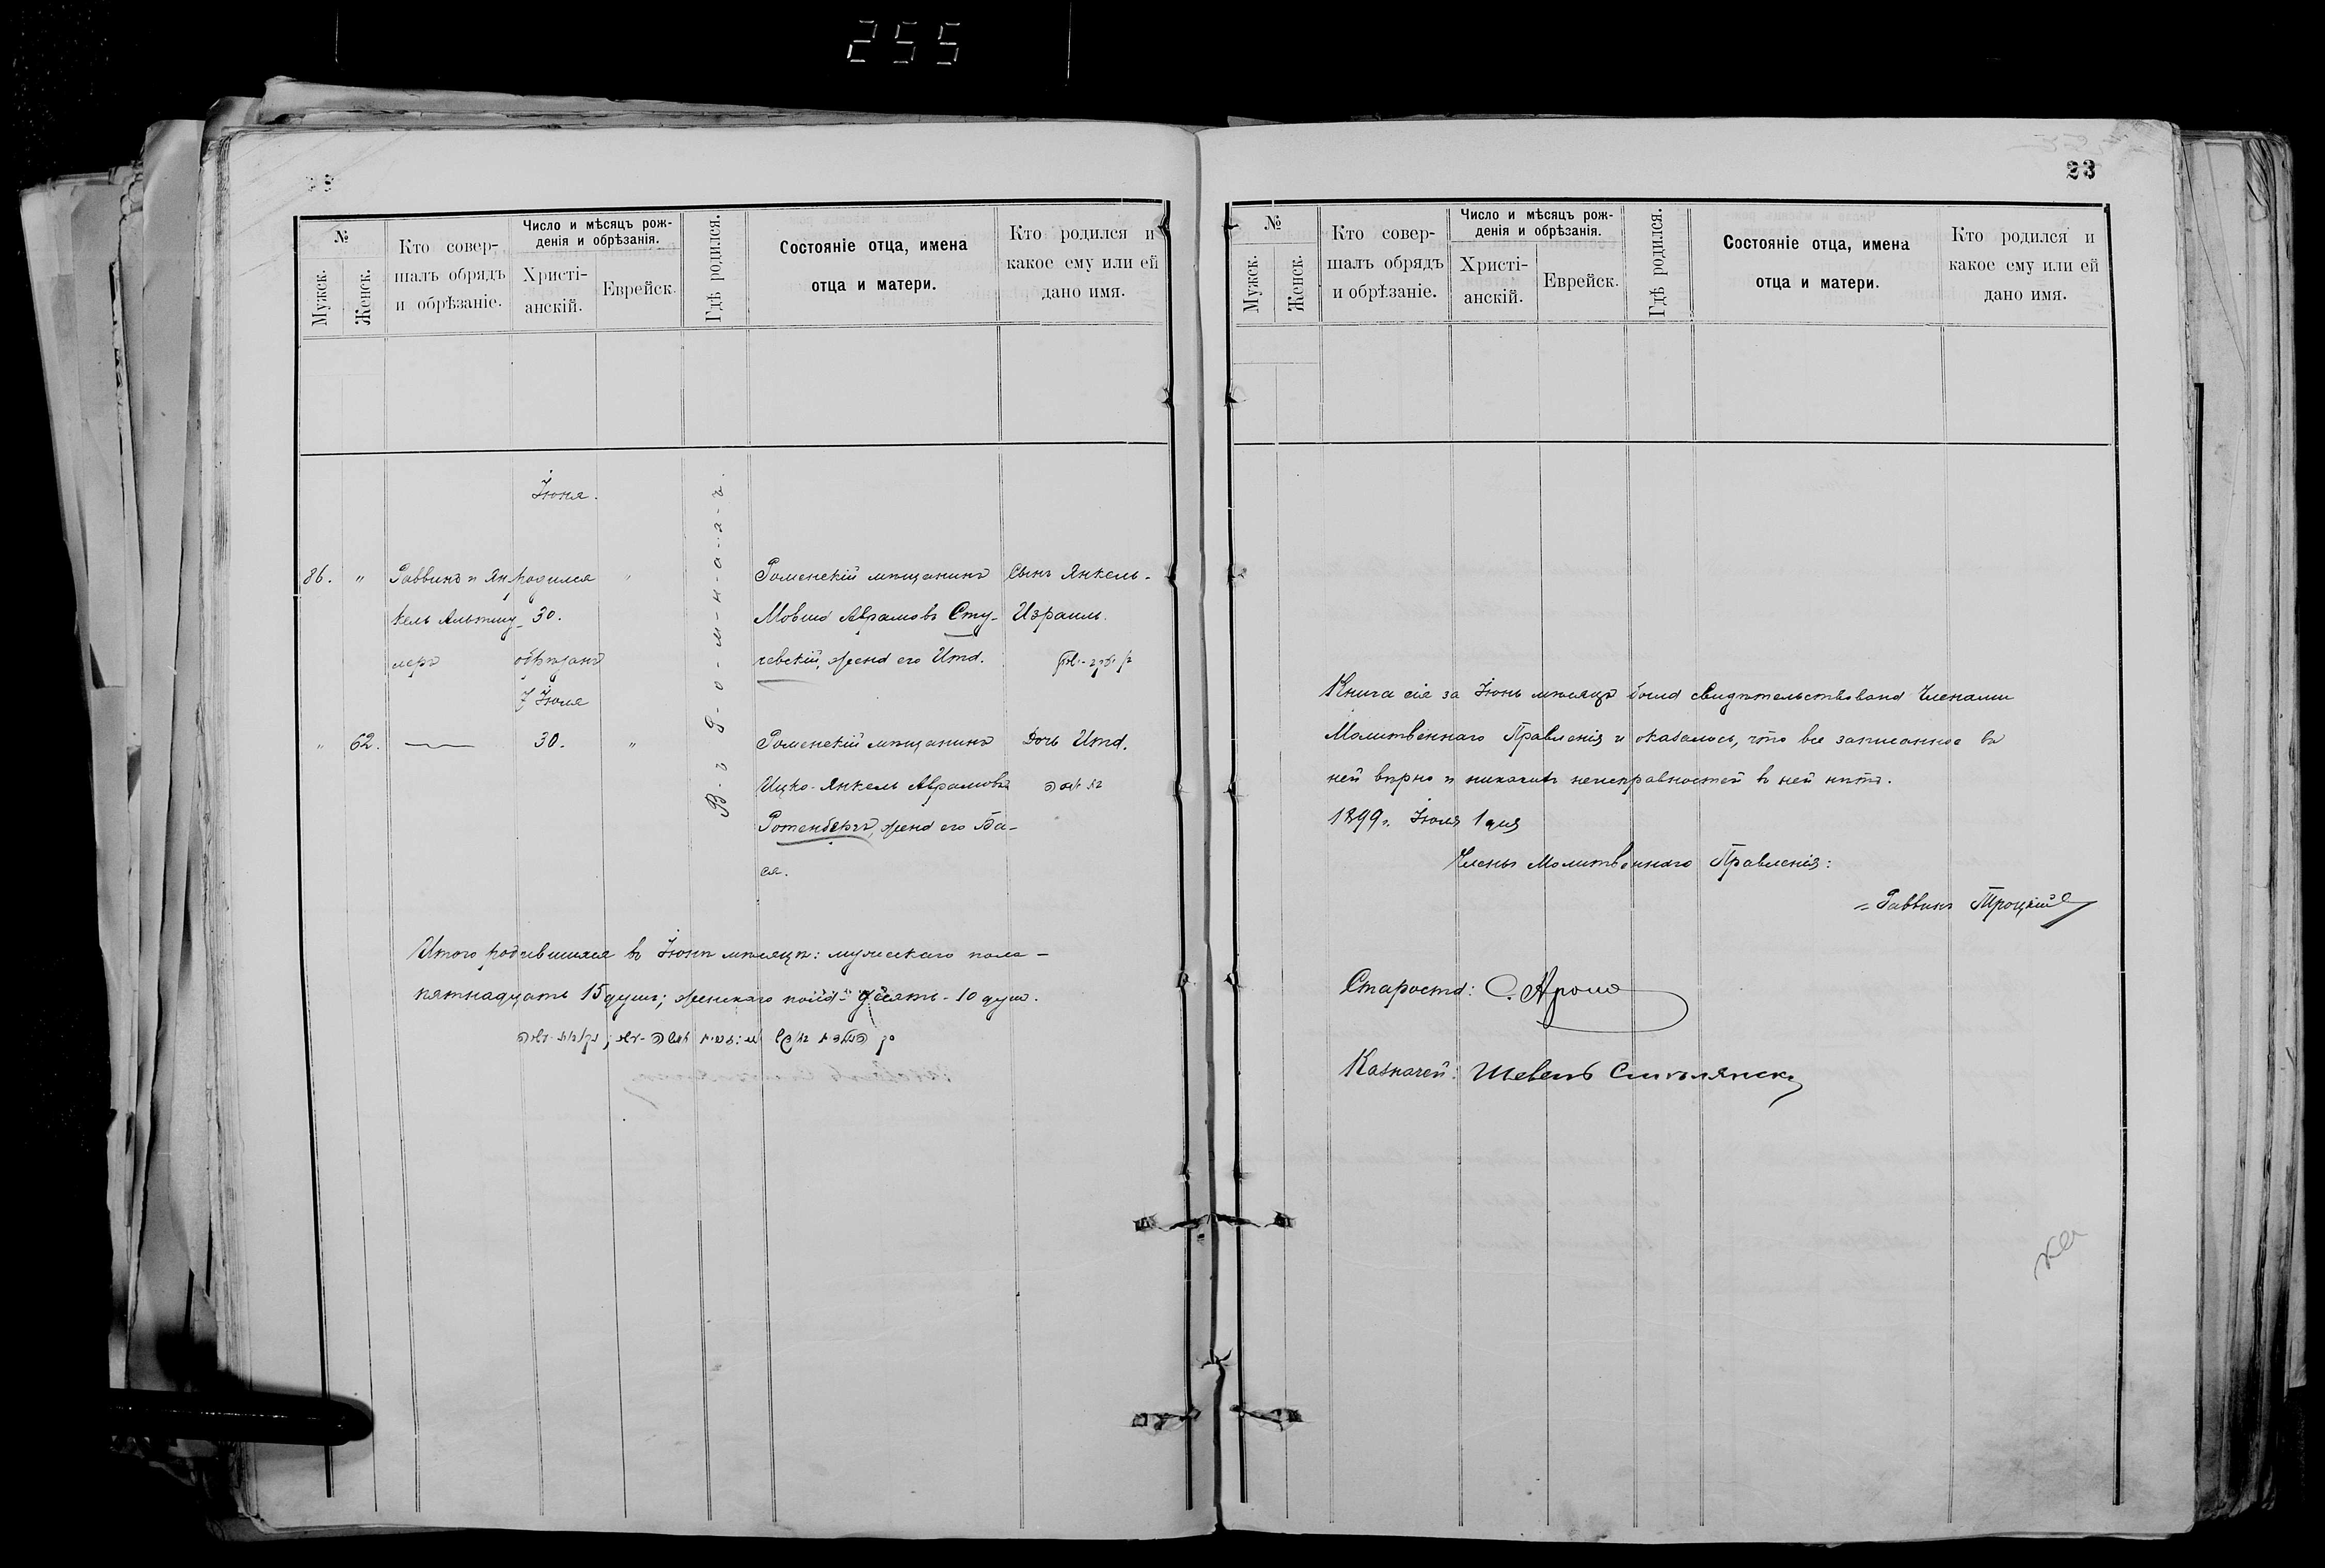 255
№
Мужск.
Женск.
Кто совер-
шалъ обрядъ
и обрѣзаніе.
Число и мѣсяцъ рож-
денія и обрѣзанія.
Христі-
анскій.
Еврейск.
Гдѣ родился.
Состояніе отца, имена
отца и матери.
Кто родился и
какое ему или ей
дано имя.
Іюня.
В-ъ Р-о-м-н-а-х-ъ.
86. "
Раввинъ и Ян-
кель Альтшу-
леръ
родился
30.
обрѣзанъ
7 Іюля
"
Роменскій мѣщанинъ
Мовша Абрамовъ Сту-
чевскій, жена его Ита.
Сынъ Янкель-
Израиль.
" 62.
30.
"
Роменскій мѣщанинъ
Ицко-Янкель Абрамовъ
Ротенбергъ, жена его Ба-
ся.
Дочь Ита.
Итого родившихся въ Іюнѣ мѣсяцѣ: мужескаго пола -
пятнадцать 15 душъ; женскаго пола - десять - 10 душ.
23
№
Мужск.
Женск.
Кто совер-
шалъ обрядъ
и обрѣзаніе.
Число и мѣсяцъ рож-
денія и обрѣзанія.
Христі-
анскій.
Еврейск.
Гдѣ родился.
Состояніе отца, имена
отца и матери.
Кто родился и
какое ему или ей
дано имя.
Книга сія за Іюнь мѣсяцъ была свидѣтельствована Членами
Молитвеннаго Правленія и оказалось, что все записанное въ
ней вѣрно и никакихъ неисправностей въ ней нѣтъ.
1899 г. Іюля 1 дня
Члены Молитвеннаго Правленія:
Раввинъ Троцкій
Староста:
Казначей: Шевель